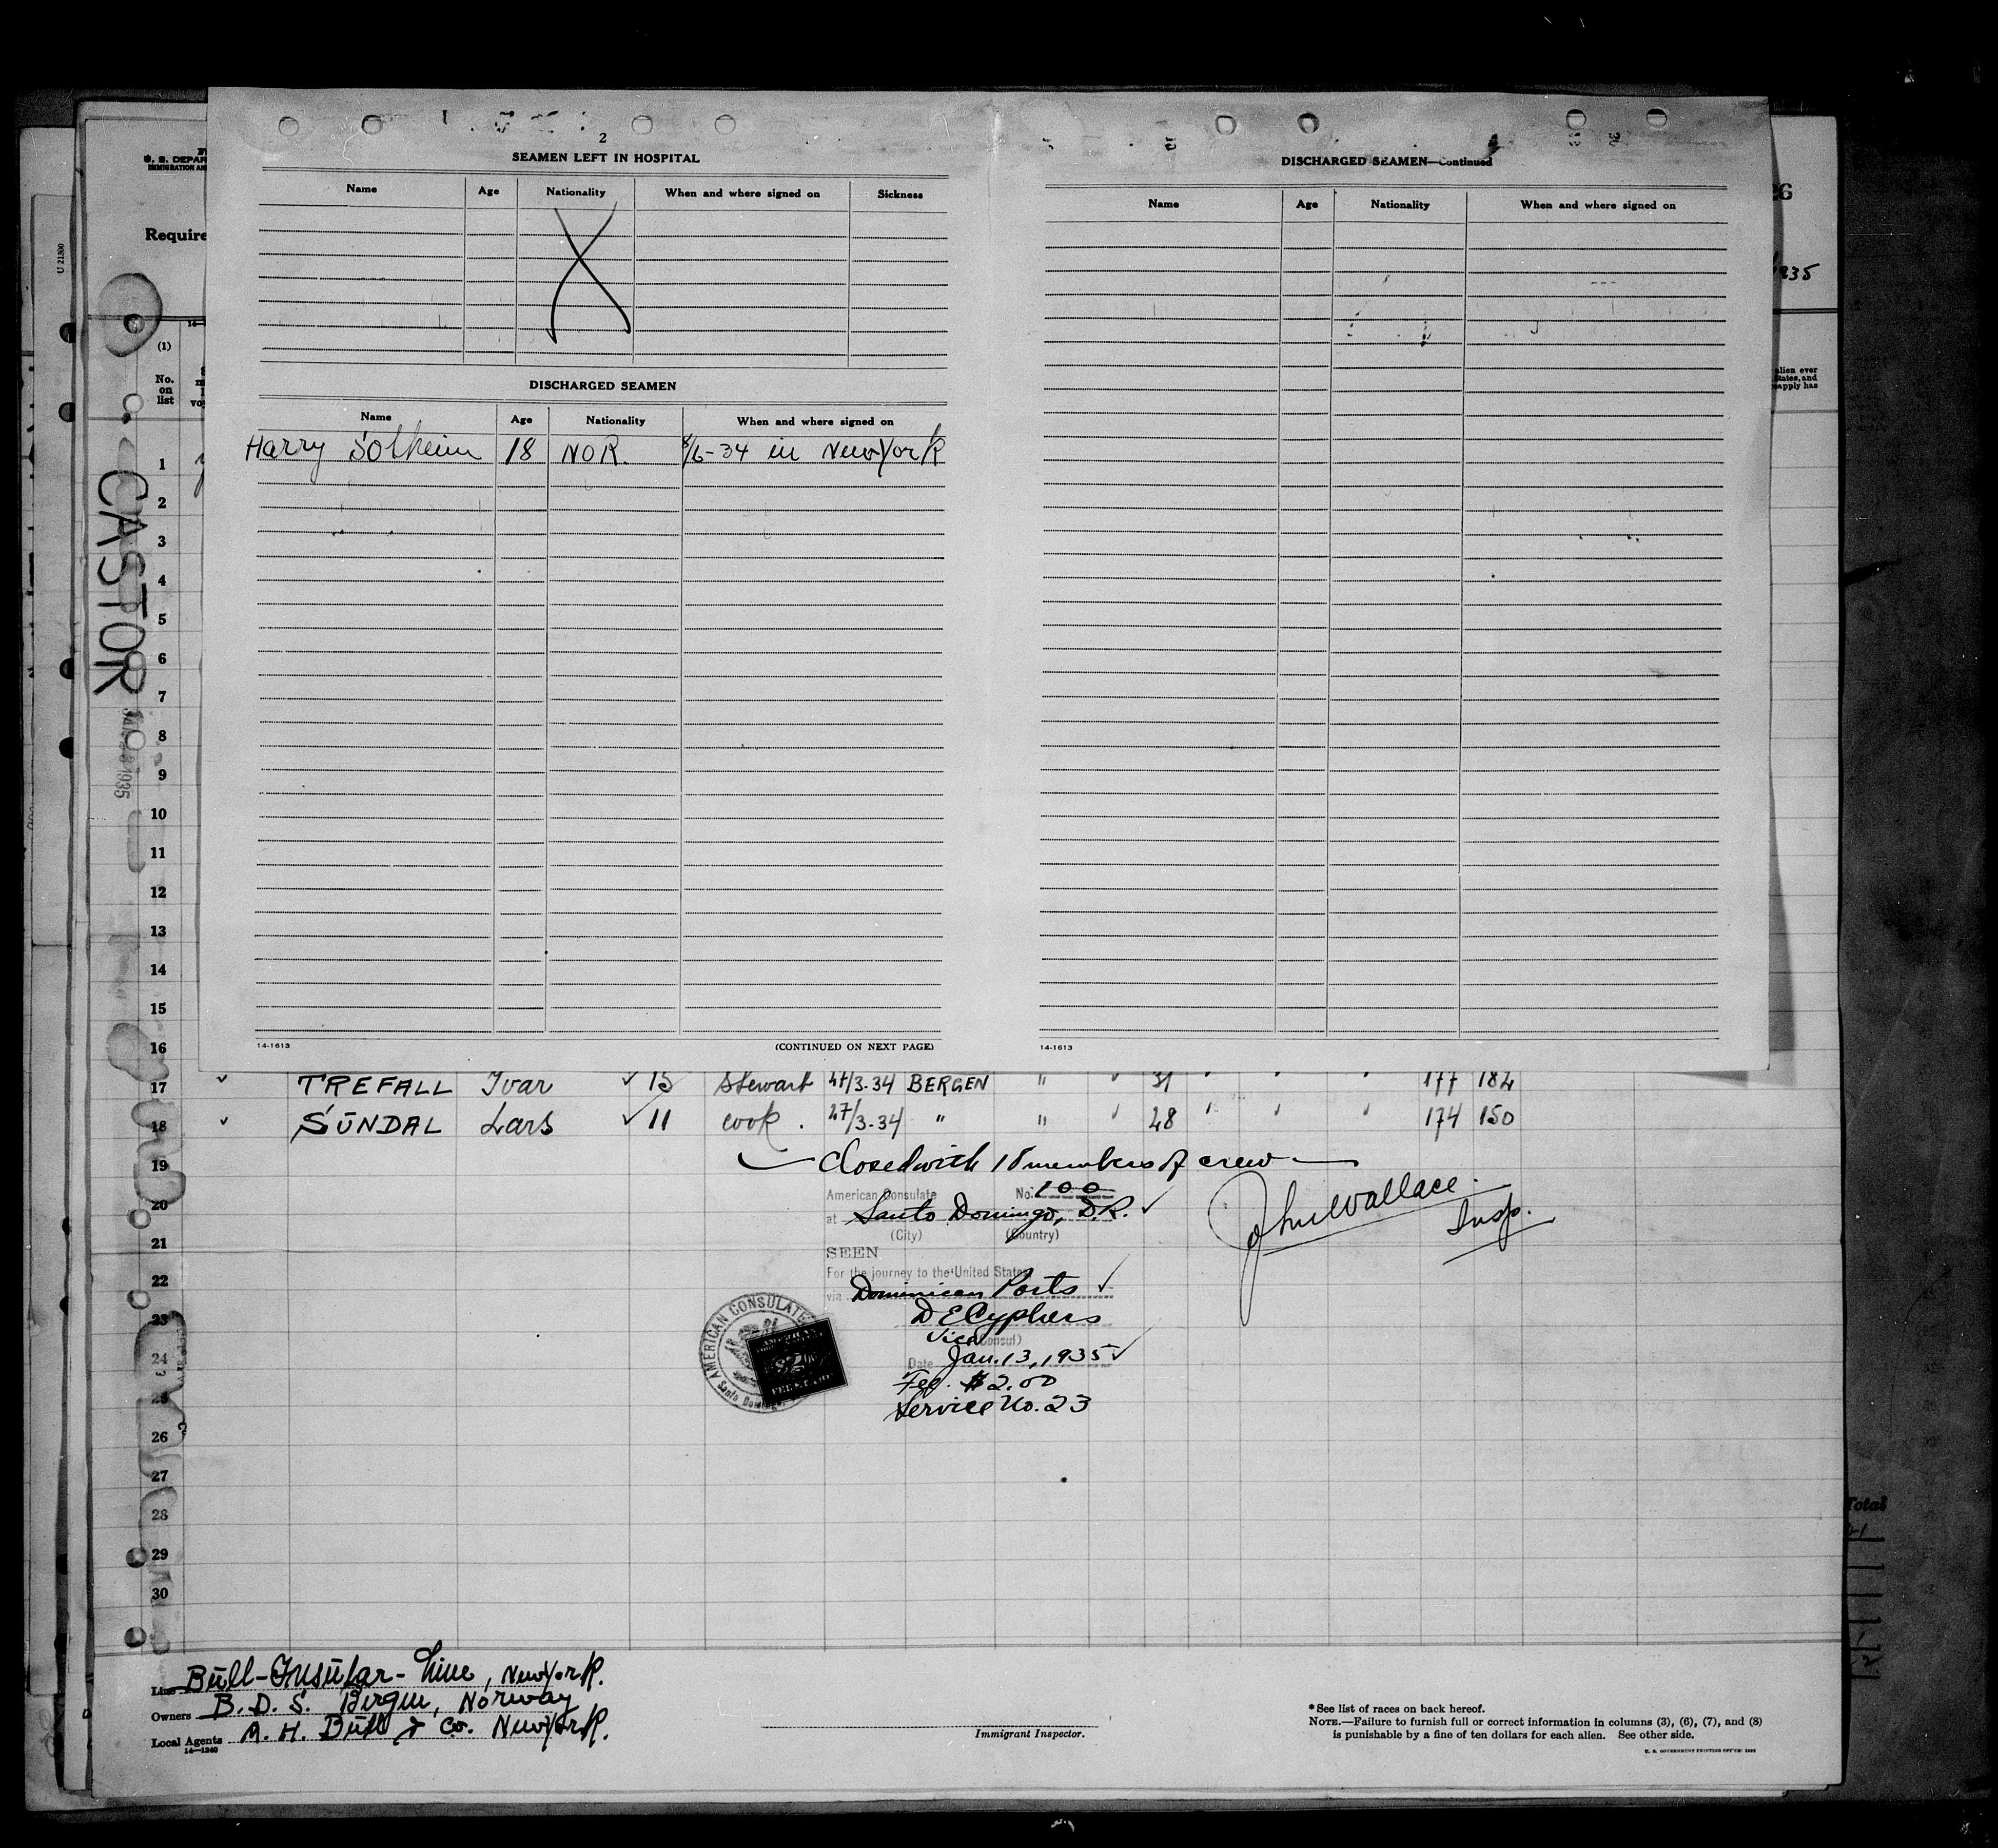 2
SEAMEN LEFT IN HOSPITAL
Name Age Nationality When and where signed on Sickness
DISCHARGED SEAMEN
Name Age Nationality When and where signed on
Harry Solheim 18 NOR. 8/6-34 in New York
14-1613
(CONTINUED ON NEXT PAGE)
DISCHARGED SEAMEN—Continued
Name Age Nationality When and where signed on
14-1613
U. S. DEPAR
IMMIGRATION AN
Require
U 21800
26
1935
(1)
No.
on
list
alien ever
States, and
apply has
CASTOR
1935
1
2
3
4
5
6
7
8
9
10
11
12
13
14
15
16
17 ✓ TREFALL Ivar ✓ 15 Stewart 27/3-34 BERGEN " 31 177 182
18 ✓ SUNDAL Lars ✓ 11 cook. 27/3-34 " " 28 174 150
19 Closed with 18 members of crew
20
21
22
23
24
25
26
27
28
29
30
American Consulate No. 100
at Santo Domingo, D.R. ✓
(City) (Country)
SEEN
For the journey to the United States
via Dominican Ports ✓
D E Cyphers
Vice Consul)
Date Jan. 13, 1935 ✓
Fee. $2.00
Service No. 23
John Wallace.
Insp.
AMERICAN CONSULATE
Total
Line Bull-Insular-Line, New York.
Owners B. D. S. Bergen, Norway
Local Agents A. H. Bull & Co. New York.
14-1240
Immigrant Inspector.
* See list of races on back hereof.
NOTE.—Failure to furnish full or correct information in columns (3), (6), (7), and (8)
is punishable by a fine of ten dollars for each alien. See other side.